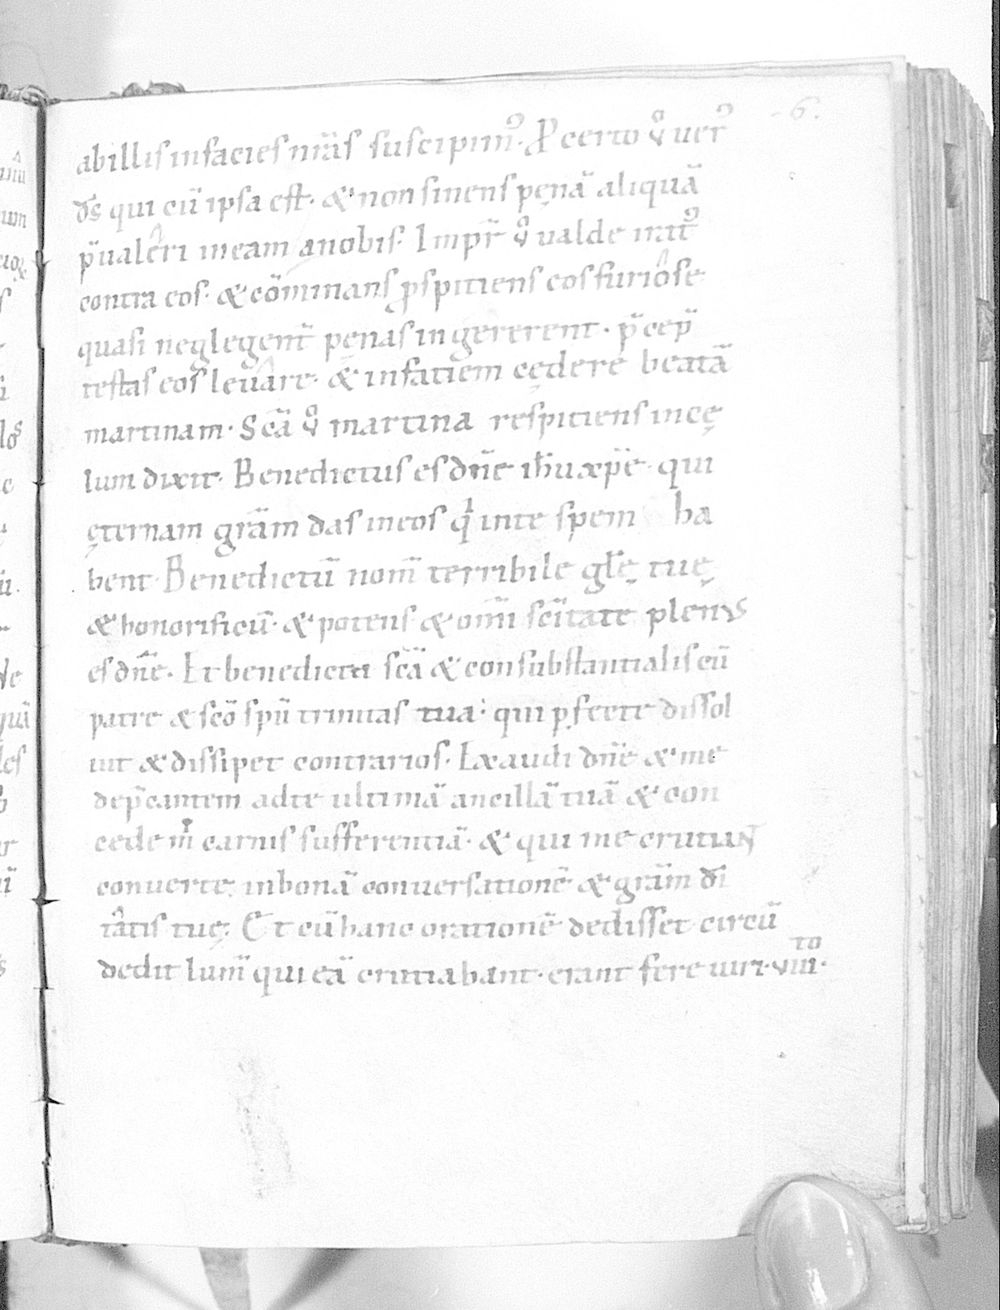 -6.
ab illis in facies nr̄as suscipim᷒. P̱ certo v̊ uer᷒
d̄s qui cū ipsa est. & non sinens penā aliquā
p̄ualeri in eam a nobis. Impr̄ v̊ ualde irat᷒
contra eos. & cōminans ꝓspitiens eos furiose
quasi neglegent̄ penas ingererent. p̄cep̄
testas eos leuare. & in fatiem cędere beatā
martinam. Scā v̊ martina respitiens in cę
lum dixit. Benedictus es dn̄e ih̄u xp̄e qui
ęternam grām das in eos qͥ in te spem ha
bent. Benedictū nom̄ terribile glę̄ tuę
& honorificū. & potens & om̄i scītate plenus
es dn̄e. Et benedicta scā & consubstantialis cū
patre & scō spū trinitas tua. qui ꝑfecte dissol
uit & dissipet contrarios. Exaudi dn̄e & me
dep̄cantem ad te ultimā ancillā tuā & con
cede m̄ carnis sufferentiā. & qui me crutiant
conuerte in bonā conuersationē & grām di
tatis tuę. Et cū hanc orationē dedisset circū
dedit lum̄ qui eā crutiabant. erant fere uiri. viii.ᵗᵒ